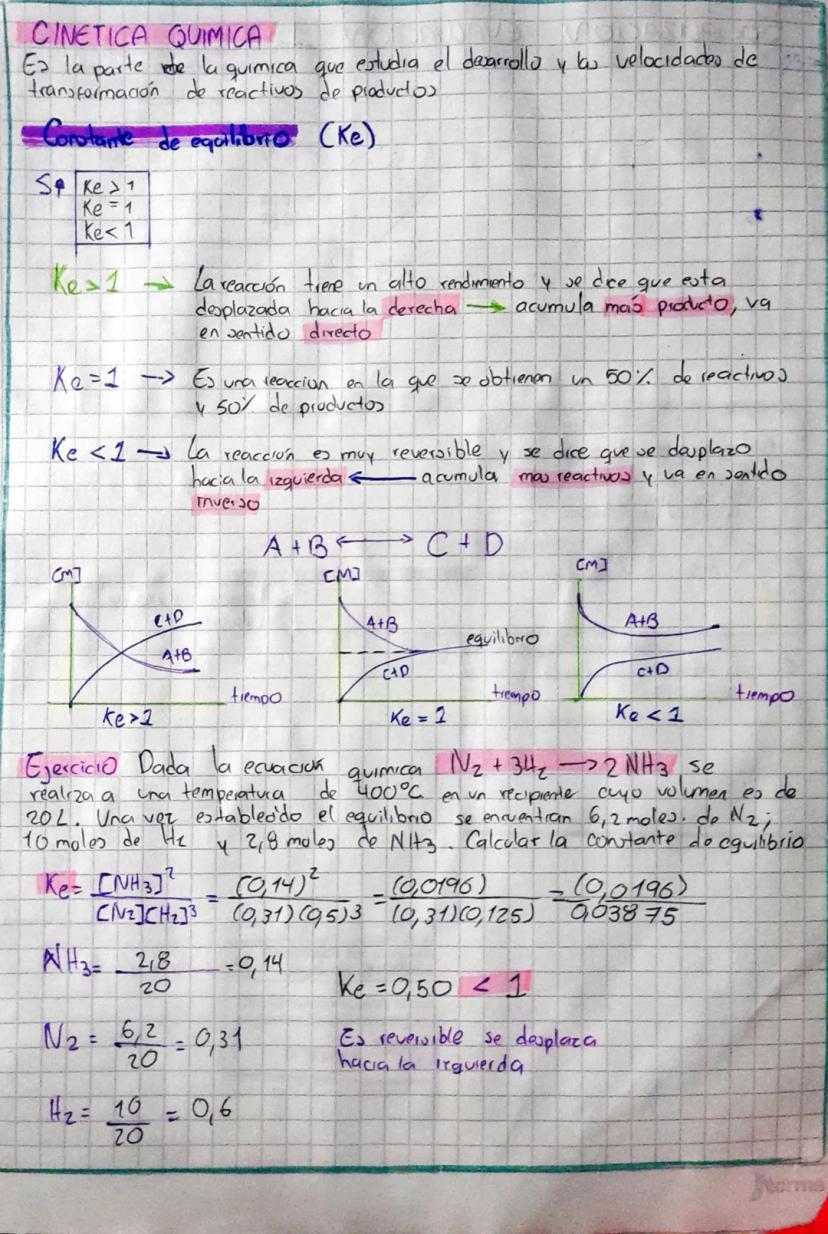 CINETICA QUIMICA
Es la parte de la quimica que estudia el desarrollo y las velocidades de
transformación de reactivos de productos
Constante de equilibrio (Ke)
Si Ke > 1
Ke = 1
Ke < 1
Ke > 1 → La reacción tiene un alto rendimiento y se dice que esta
desplazada hacia la derecha → acumula mas producto, va
en sentido directo
Ke = 1 → Es una reaccion en la que se obtienen un 50% de reactivos
y 50% de productos
Ke < 1 → La reacción es muy reversible y se dice que se desplazo
hacia la izquierda ← acumula mas reactivos y va en sentido
inverso
A + B ↔ C + D
[M] [M] [M]
C+D A+B A+B
A+B C+D equilibrio C+D
tiempo tiempo tiempo
Ke > 1 Ke = 1 Ke < 1
Ejercicio Dada la ecuacion quimica N2 + 3H2 → 2 NH3 se
realiza a una temperatura de 400°C en un recipiente cuyo volumen es de
20L. Una vez establecido el equilibrio se encuentran 6,2 moles. de N2;
10 moles de H2 y 2,8 moles de NH3. Calcular la constante de equilibrio
Ke = [NH3]² / [N2][H2]³ = (0,14)² / (0,31)(0,5)3 = (0,0196) / (0,31)(0,125) = (0,0196) / 0,03875
NH3 = 2,8 / 20 = 0,14
Ke = 0,50 < 1
N2 = 6,2 / 20 = 0,31
Es reversible se desplaza
hacia la izquierda
H2 = 10 / 20 = 0,6
Norma